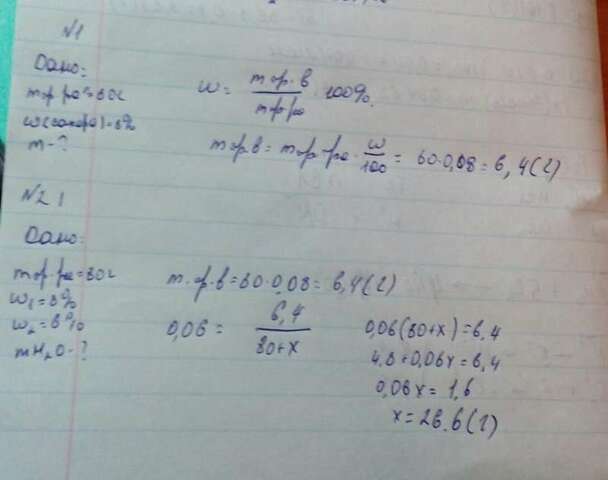 №1
Дано:
mр.ра=80г
w(сахара)=8%
m-?
w= mр.в / mр.ра · 100%.
mр.в = mр-ра · w/100 = 80·0,08=6,4(г)
№2 1
Дано:
mр-ра=80г
w₁=8%
w₂=6%
mH₂O-?
m.р.в=80·0,08=6,4(г)
0,06= 6,4 / 80+x
0,06(80+x)=6,4
4,8+0,06x=6,4
0,06x=1,6
x=26.6(г)